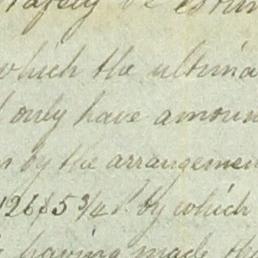 safely be estim
which the ultima
only have amoun
by the arrangemen
126 $ 5 3/4 . by which
having made the